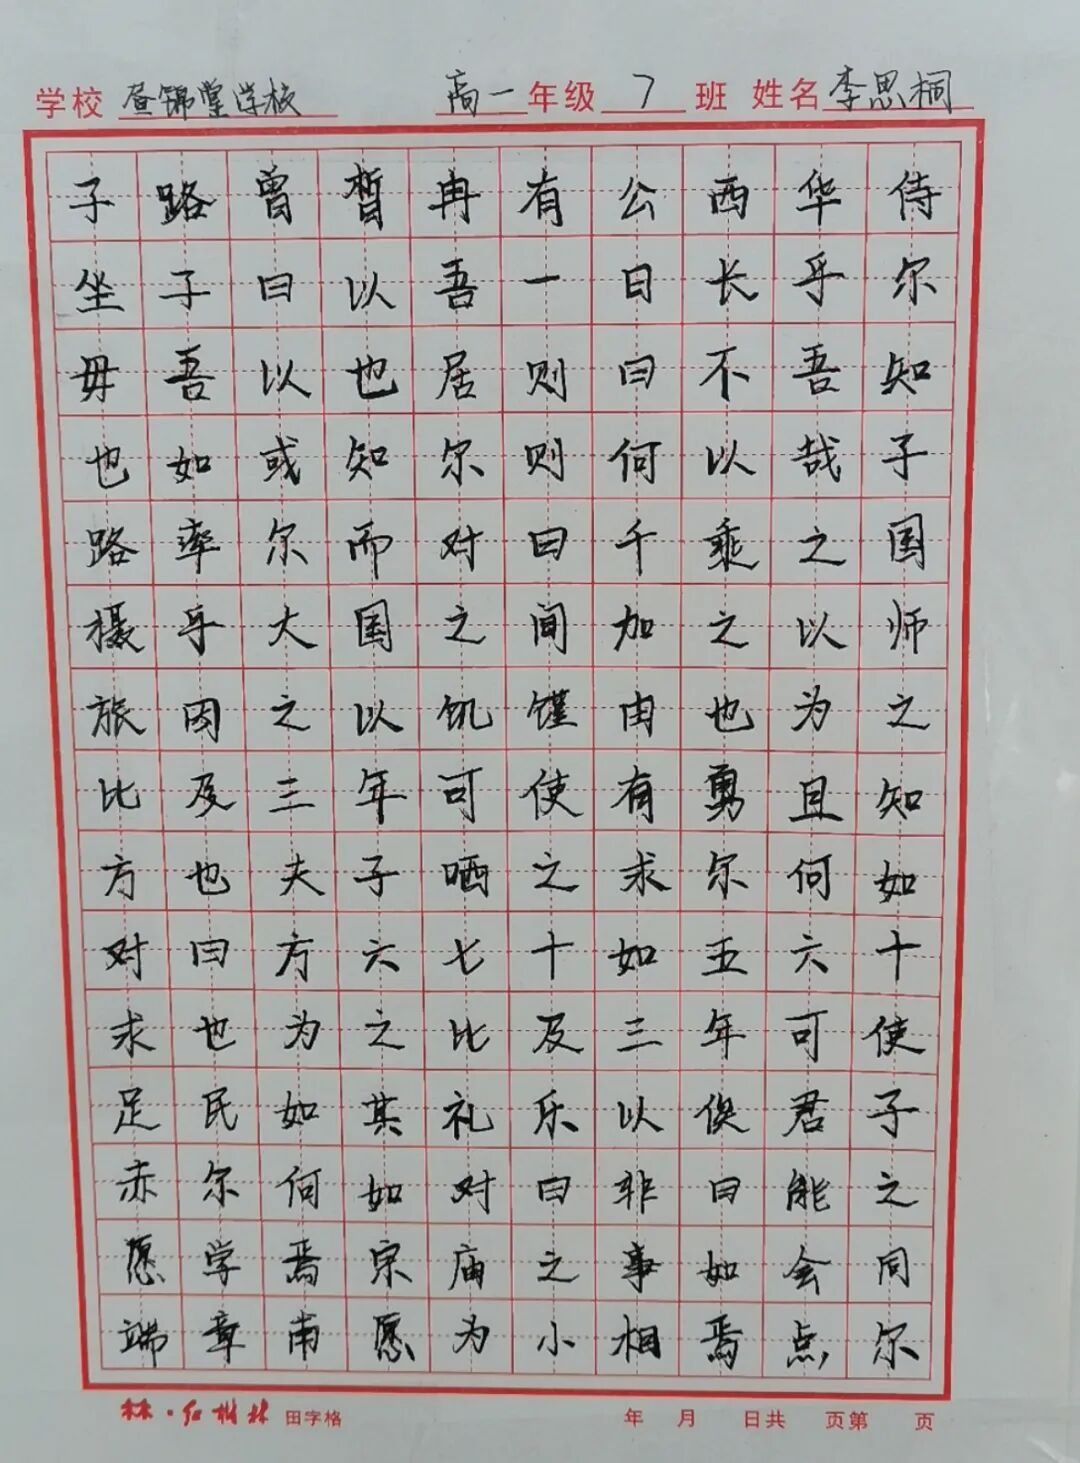 学校 昼锦堂学校 高一年级 7 班 姓名 李思桐
子路曾皙冉有公西华侍
坐子曰以吾一日长乎尔
毋吾以也居则曰不吾知
也如或知尔则何以哉子
路率尔而对曰千乘之国
摄乎大国之间加之以师
旅因之以饥馑由也为之
比及三年可使有勇且知
方也夫子哂之求尔何如
对曰方六七十如五六十
求也为之比及三年可使
足民如其礼乐以俟君子
赤尔何如对曰非曰能之
愿学焉宗庙之事如会同
端章甫愿为小相焉点尔
林·红树林 田字格 年 月 日共 页第 页